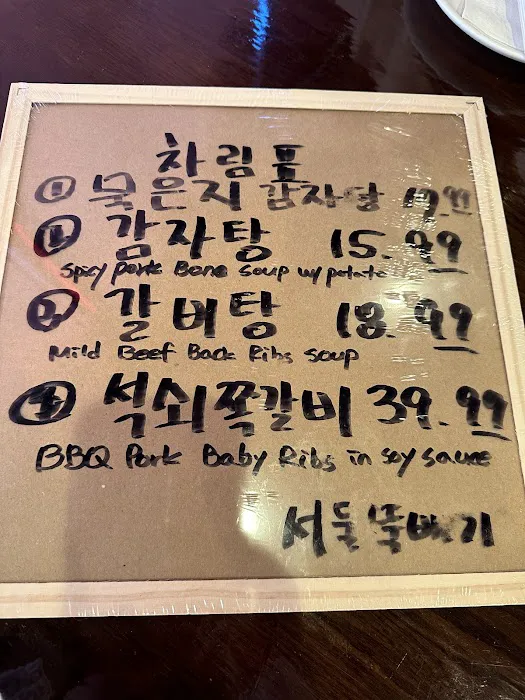 차림표
① 묵은지 감자탕
② 감자탕 15.99
Spicy pork Bone soup w/ potato
③ 갈비탕 18.99
Mild Beef Back Ribs soup
④ 석쇠쪽갈비 39.99
BBQ Pork Baby Ribs in soy sauce
서울뚝배기